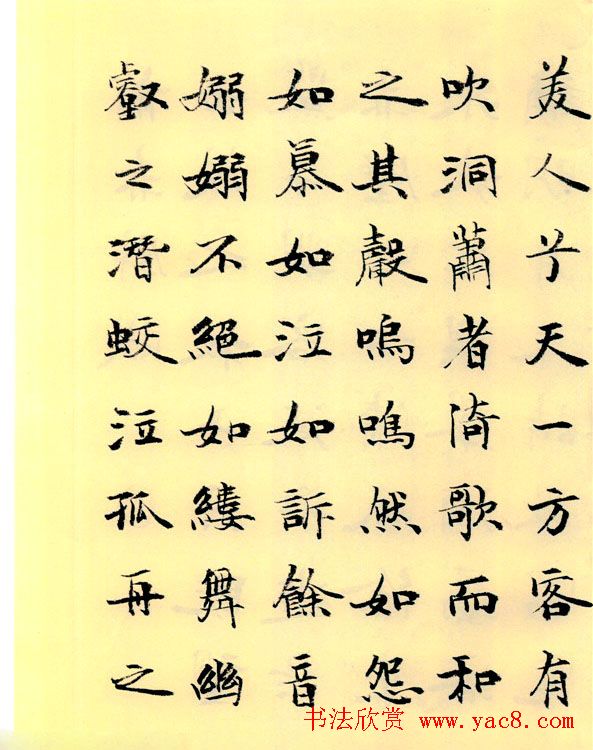 美人兮天一方客有
吹洞蕭者倚歌而和
之其聲嗚嗚然如怨
如慕如泣如訴餘音
嫋嫋不絕如縷舞幽
叡之潛蛟泣孤舟之
书法欣赏 www.yac8.com